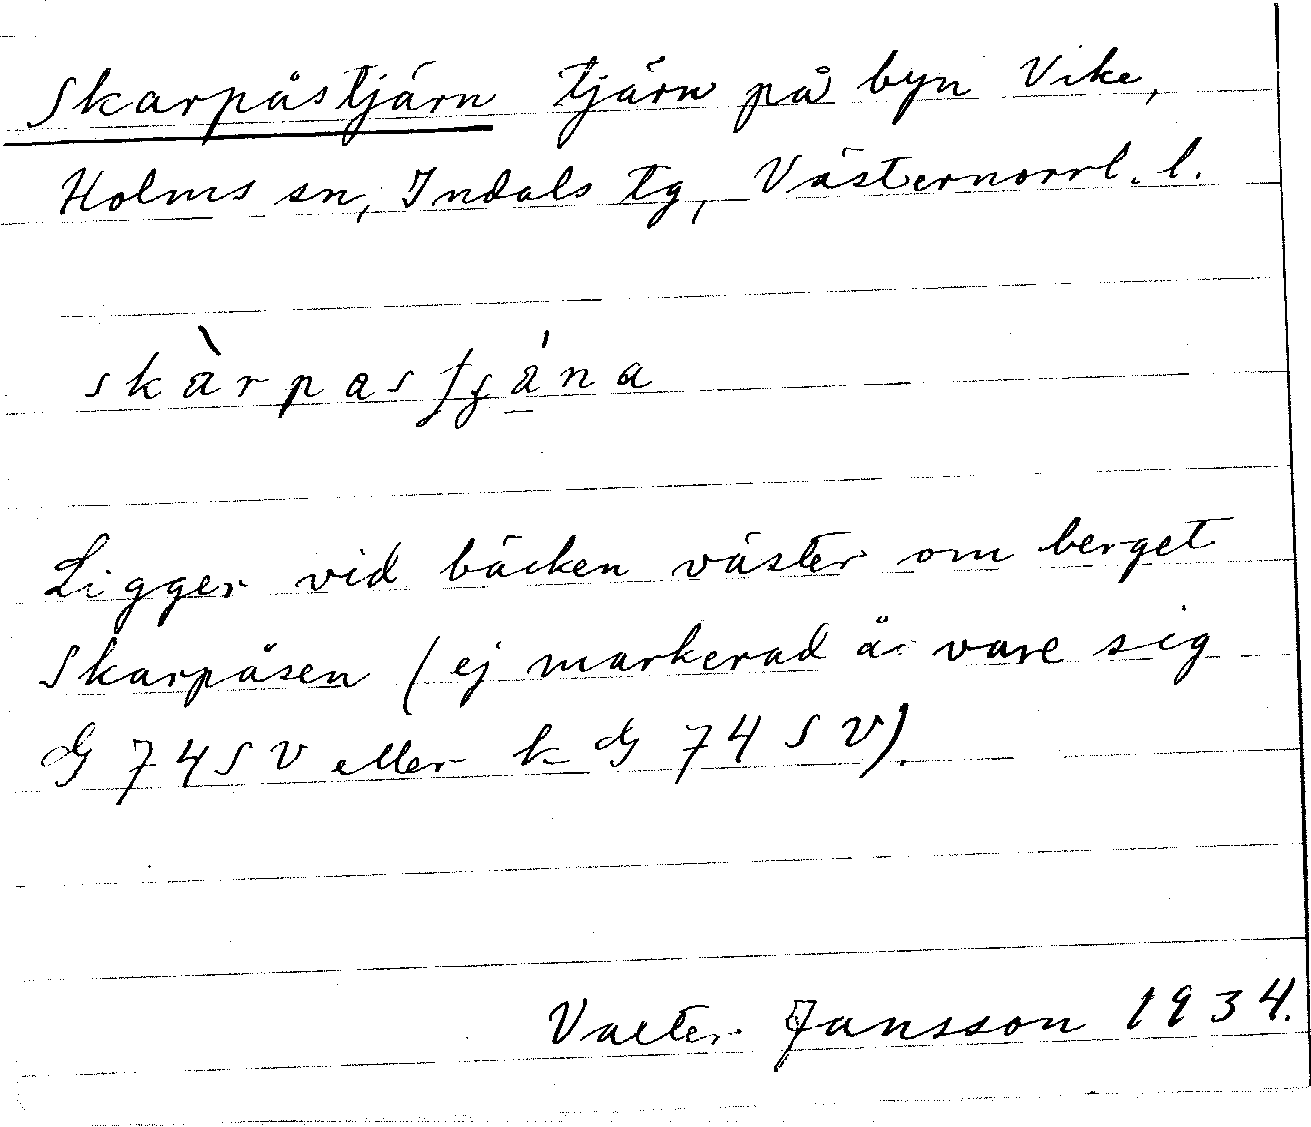 Skarpåstjärn tjärn på byn Vike,
Holms sn, Indals tg, Västernorrl. l.
skàrpasʃʝána
Ligger vid bäcken väster om berget
Skarpåsen (ej markerad å vare sig
G 74 SV eller k G 74 SV).
Valter Jansson 1934.